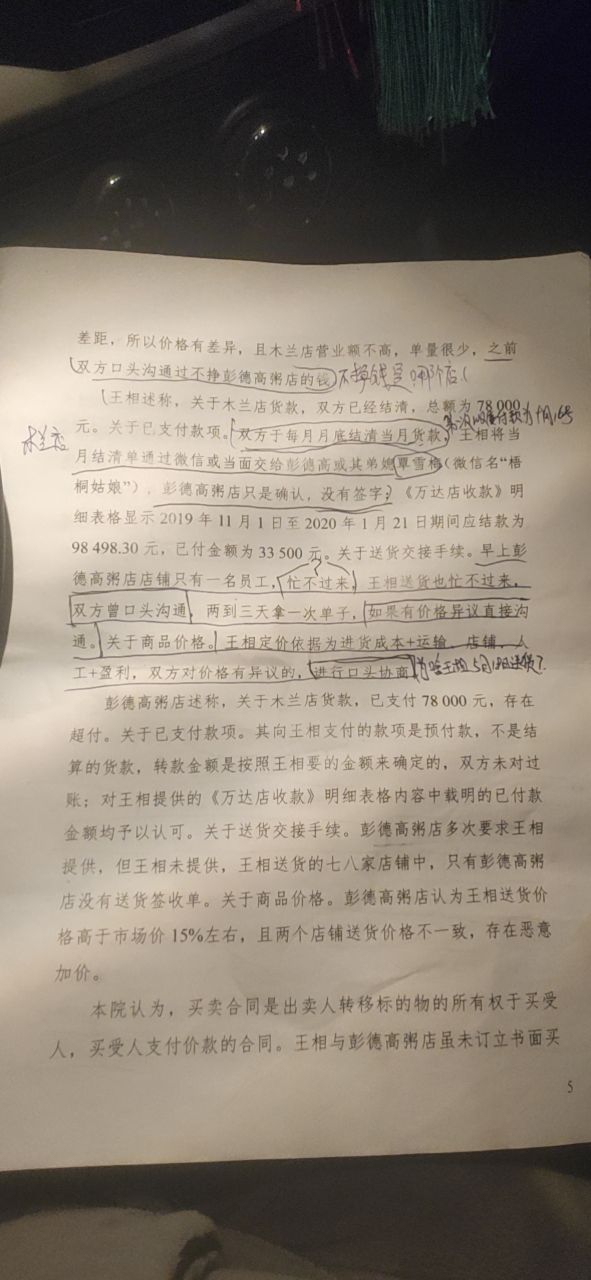 差距，所以价格有差异，且木兰店营业额不高，单量很少，之前
双方口头沟通过不挣彭德高粥店的钱。不挣钱是哪个店！
王相述称，关于木兰店货款，双方已经结清，总额为 78 000
元。关于已支付款项。双方于每月月底结清当月货款，王相将当
木兰店
月结清单通过微信或当面交给彭德高或其弟媳覃雪梅（微信名“梧
桐姑娘”），彭德高粥店只是确认，没有签字？《万达店收款》明
细表格显示 2019 年 11 月 1 日至 2020 年 1 月 21 日期间应结款为
98 498.30 元，已付金额为 33 500 元。关于送货交接手续。早上彭
?
德高粥店店铺只有一名员工，忙不过来，王相送货也忙不过来，
双方曾口头沟通，两到三天拿一次单子，如果有价格异议直接沟
通。关于商品价格。王相定价依据为进货成本+运输、店铺、人
工+盈利，双方对价格有异议的，进行口头协商
彭德高粥店述称，关于木兰店货款，已支付 78 000 元，存在
超付。关于已支付款项。其向王相支付的款项是预付款，不是结
算的货款，转款金额是按照王相要的金额来确定的，双方未对过
账；对王相提供的《万达店收款》明细表格内容中载明的已付款
金额均予以认可。关于送货交接手续。彭德高粥店多次要求王相
提供，但王相未提供，王相送货的七八家店铺中，只有彭德高粥
店没有送货签收单。关于商品价格。彭德高粥店认为王相送货价
格高于市场价 15%左右，且两个店铺送货价格不一致，存在恶意
加价。
本院认为，买卖合同是出卖人转移标的物的所有权于买受
人，买受人支付价款的合同。王相与彭德高粥店虽未订立书面买
5